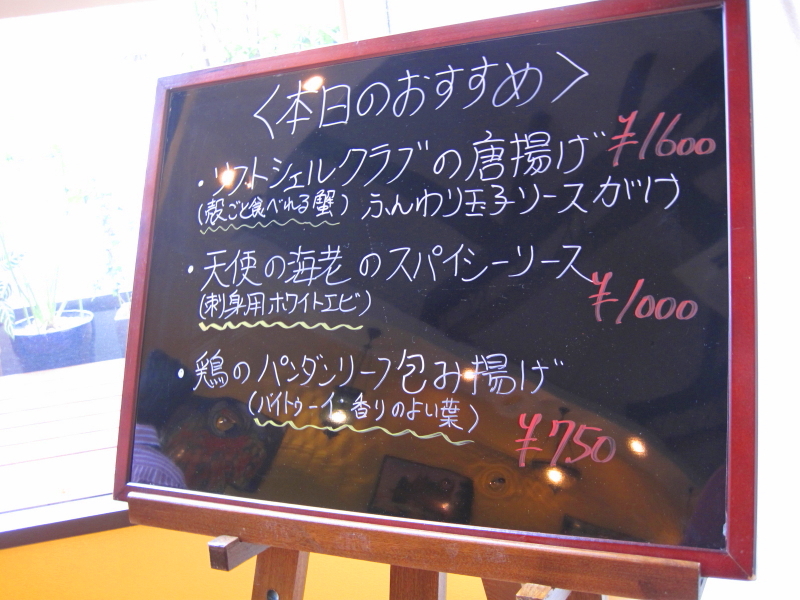 〈本日のおすすめ〉
・ソフトシェルクラブの唐揚げ ¥1600
(殻ごと食べれる蟹) ふんわり玉子ソースがけ
・天使の海老のスパイシーソース
(刺身用ホワイトエビ) ¥1000
・鶏のパンダンリーフ包み揚げ
(バイトゥーイ 香りのよい葉)
¥750